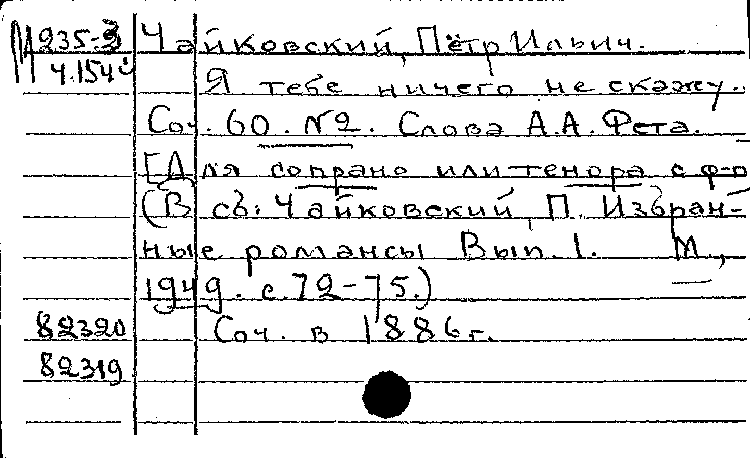 М235-3 Чайковский, Пётр Ильич.
Ч.154 Я тебе ничего не скажу.
Соч. 60. №2. Слова А.А. Фета.
[Для сопрано или тенора с ф-п
(В сб: Чайковский, П. Избран-
ные романсы Вып. 1. М.,
1949. с. 72-75.)
82320 Соч. в 1886 г.
82319